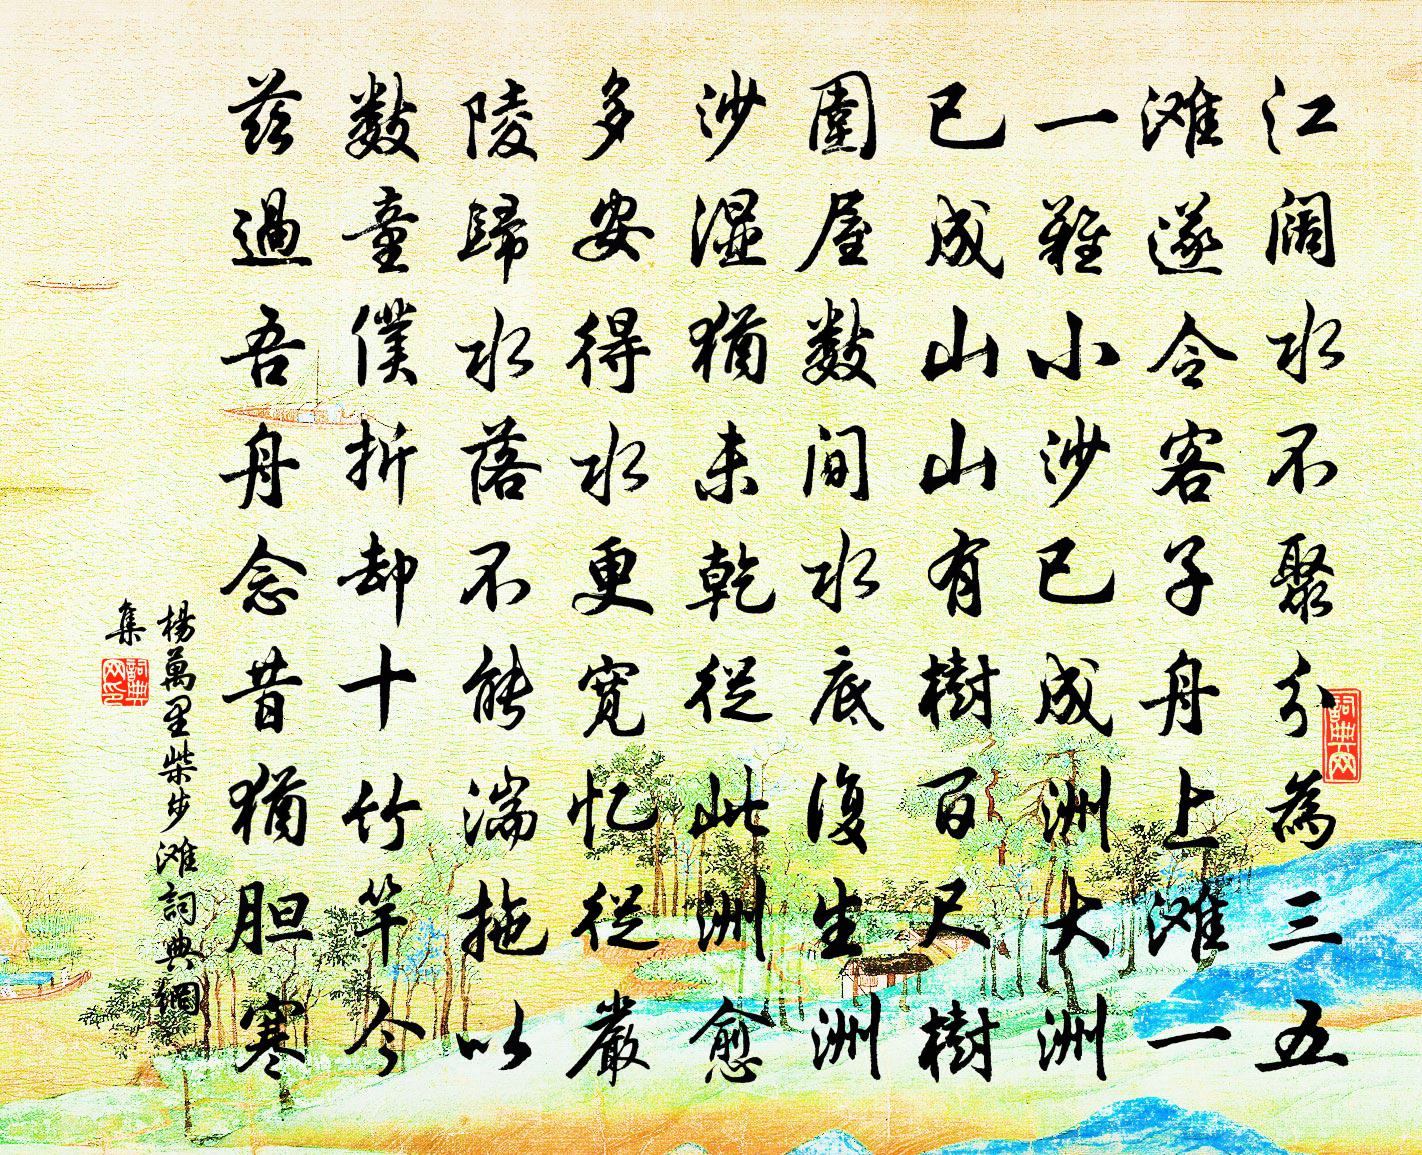 江阔水不聚分為三五
滩遂令客子舟上滩一
一難小沙已成洲大洲
已成山山有樹百尺樹
圍屋數间水底復生洲
沙湿猶未乾從此洲愈
多安得水更寬忆從嚴
陵歸水落不能湍拖以
數童僕折却十竹竿今
茲過吾舟念昔猶胆寒
楊萬里柴步滩詞典網
集
詞典网
詞典网印